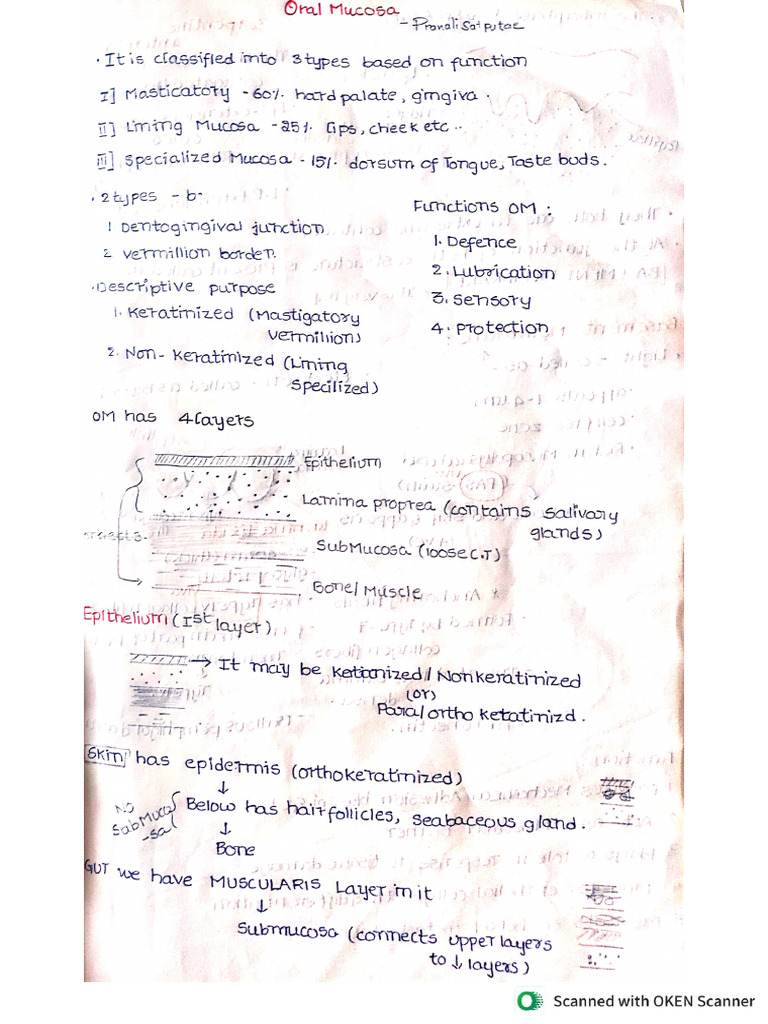 Oral Mucosa
- Pranali Satputae
• It is classified into 3 types based on function
I] Masticatory - 60%. hard palate, gingiva.
II] Lining Mucosa - 25%. Lips, cheek etc..
III] Specialized Mucosa - 15%. dorsum of Tongue, Taste buds.
• 2 types - b-
1 Dentogingival junction
2 vermillion border.
• Descriptive purpose
1. Keratinized (Mastigatory
vermillion)
2. Non-Keratinized (Lining
specilized)
Functions OM :
1. Defence
2. Lubrication
3. Sensory
4. Protection
OM has 4 layers
Epithelium
Lamina proprea (contains salivary
glands)
SubMucosa (loose C.T)
Bone/Muscle
Epithelium (Ist layer)
→ It may be ketionized/Nonkeratinized
(or)
Para/ortho ketatinizd.
Skin has epidermis (orthokeratinized)
↓
Below has hair follicles, seabaceous gland.
No
SabMuca
-sal
↓
Bone
GUT we have MUSCULARIS Layer in it
↓
Submucosa (connects upper layers
to ↓ layers)
Scanned with OKEN Scanner